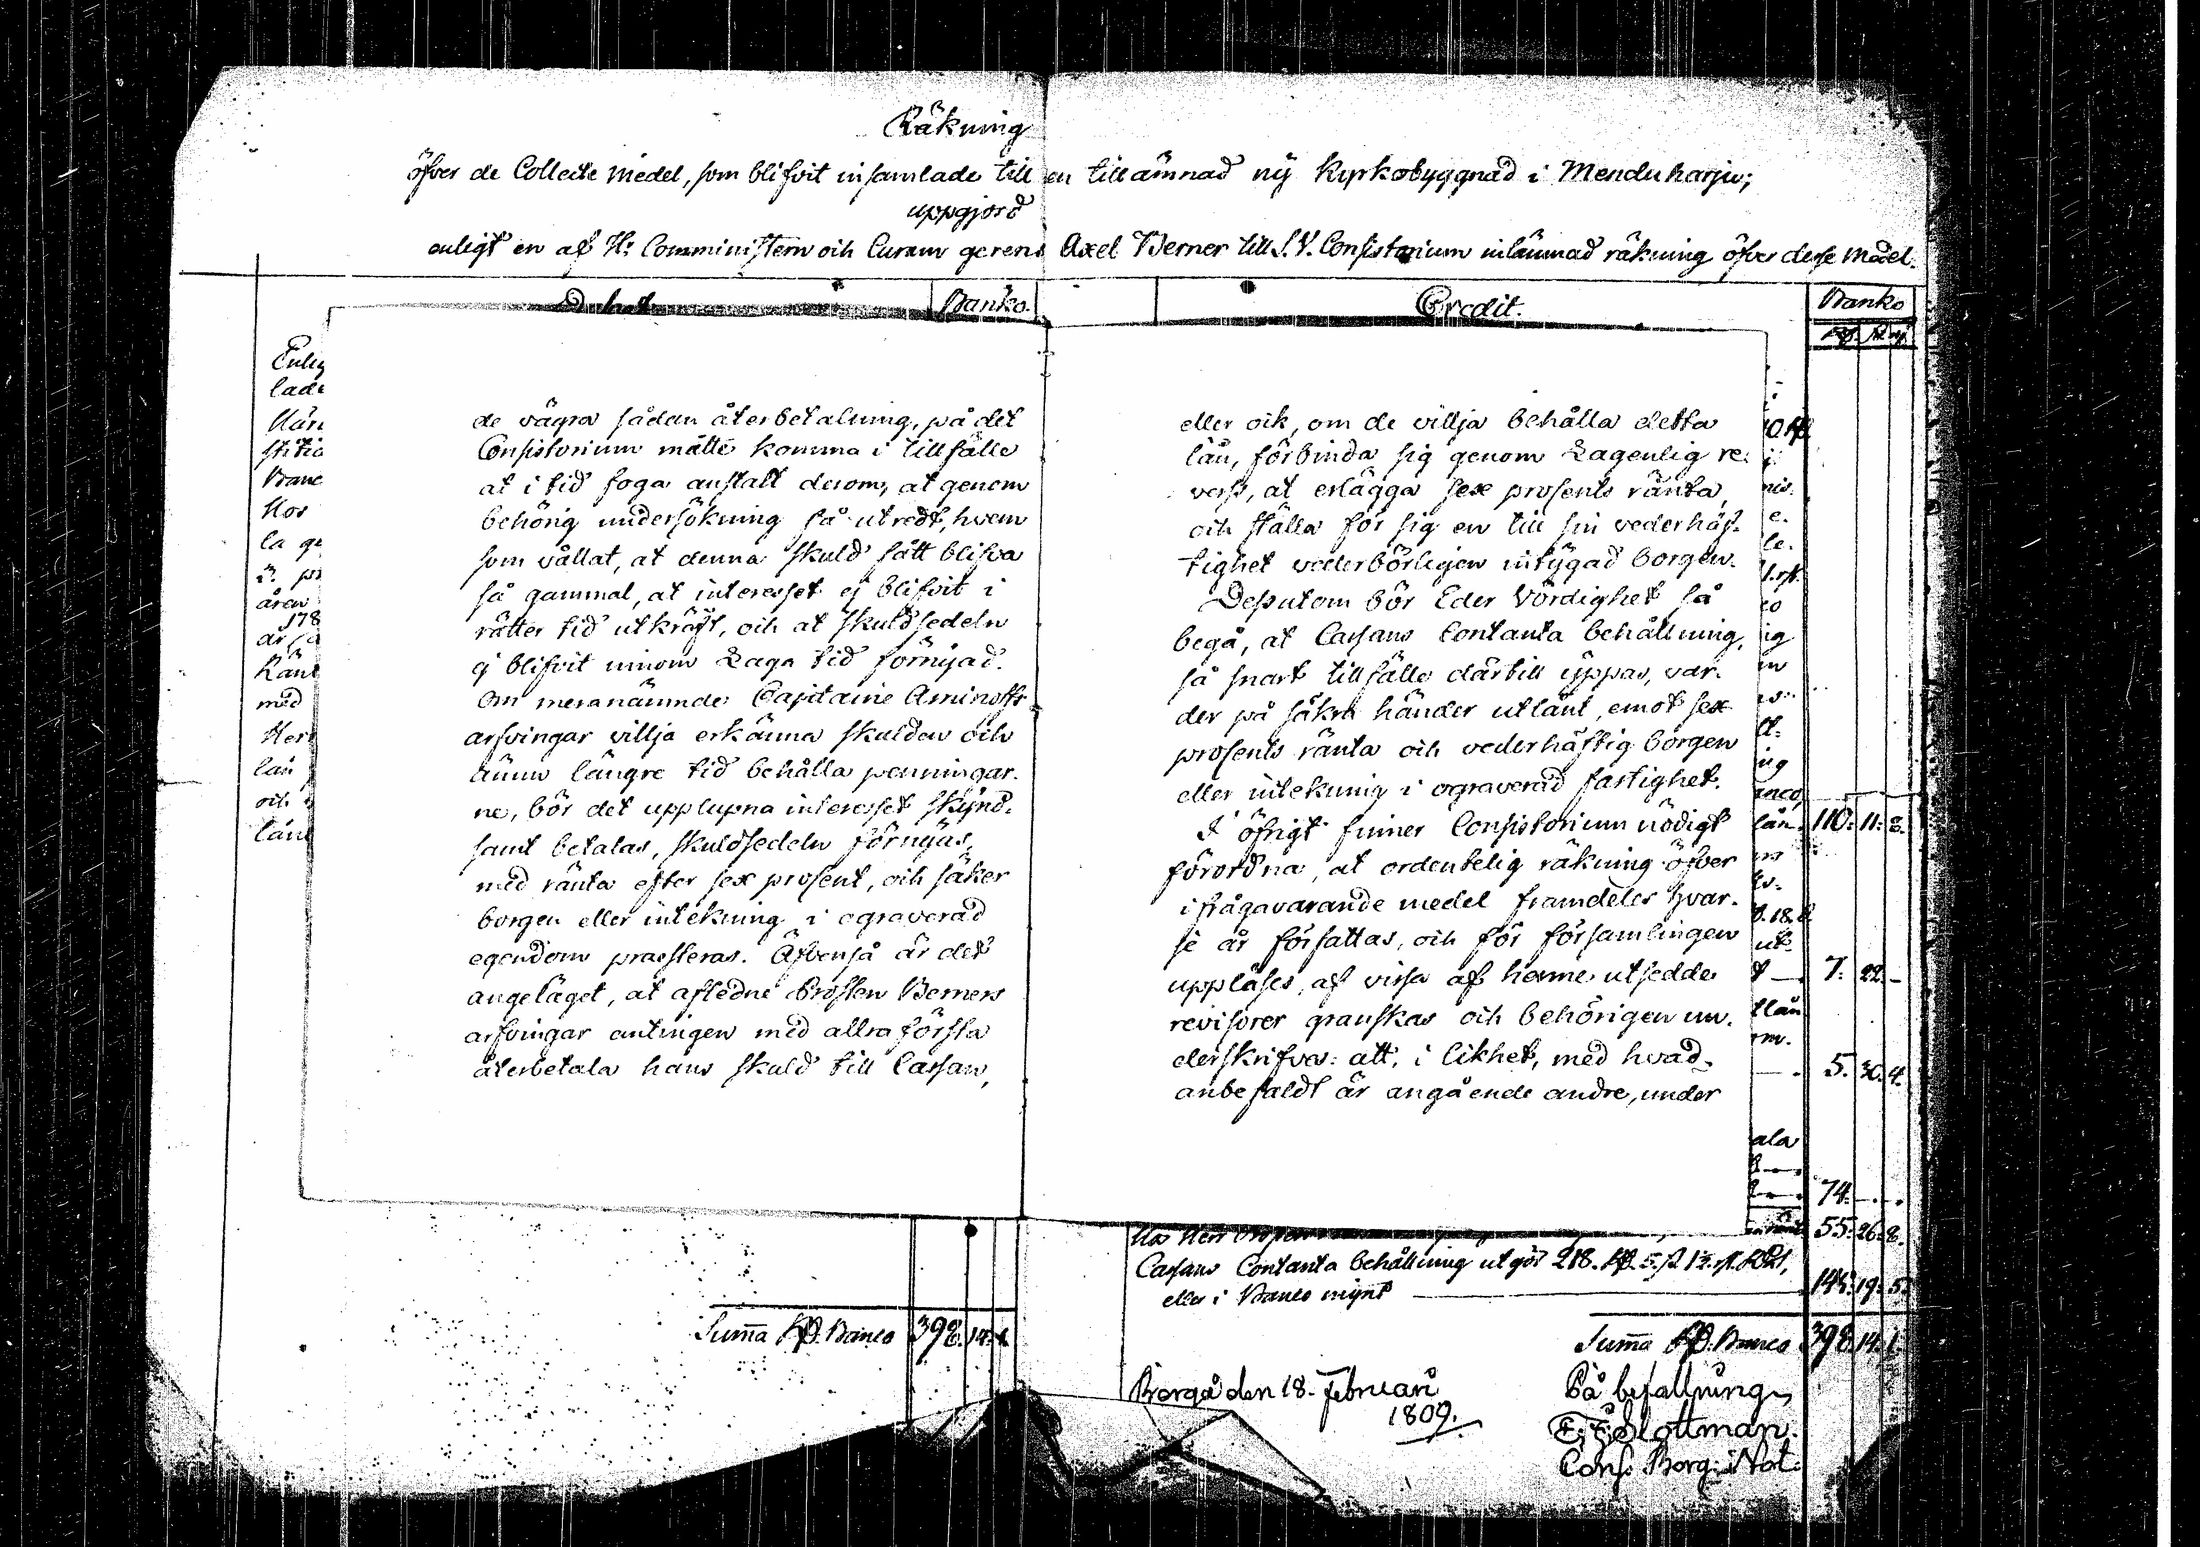 Räkning
öfver de Collecte medel, som blifvit insamlade till en tillämnad ny Kyrkobyggnad i Menduharju;
uppgjord
enligt en af Hr Comministern och Curam gerens Axel Berner till S.V. Consistorium inlämnad räkning öfver desse medel.
Debet Banko. Credit. Banko
de vägra sådan återbetalning, på det
Consistorium måtte komma i tillfälle
at i tid foga anstalt derom, at genom
behörig undersökning få utredt, hvem
som vållat, at denna skuld fått blifva
så gammal, at interesset ej blifvit i
rätter tid utkräft, och at skuldsedeln
ej blifvit innom Laga tid förnyad.
Om meranämnde Capitaine Aminoffs
arfvingar villja erkänna skulden och
ännu längre tid behålla penningar-
ne, bör det upplupna interesset skynd-
samt betalas, skuldsedeln förnyas,
med ränta efter sex prosent, och säker
borgen eller intekning i ograverad
egendom praesteras. Äfvenså är det
angeläget, at afledne Prosten Berners
arfvingar antingen med allra första
återbetala hans skuld till Cassan,
eller ock, om de villja behålla detta
lån, förbinda sig genom Lagenlig re-
vers, at erlägga sex prosents ränta,
och ställa för sig en till sin vederhäf-
tighet vederbörligen intygad borgen.
Dessutom bör Eder Vördighet så
begå, at Cassans Contanta behållning,
så snart tillfälle därtill yppas, var-
der på säkra händer utlånt, emot sex
prosents ränta och vederhäftig borgen
eller intekning i ograverad fastighet.
I öfrigt finner Consistorium nödigt
förordna, at ordentelig räkning öfver
ifrågavarande medel framdeles hvar-
je år författas, och för församlingen
uppläses, af vissa af henne utsedde
revisorer granskas och behörigen un-
derskrifves: att, i likhet, med hvad
anbefaldt är angående andre, under
Enlig
lade
Banc
Hos
åren
178
med
Herr
lån
och
110. 11. 8.
7. 22. -
5. 30. 4.
74. - . - .
55. 26. 8.
Cassans Contanta behållning utgör 218.
eller i Banco mynt 145. 19. 5
Summa Banco 398. 14. 1.
Summa Banco 398. 14. 1.
Borgå den 18. Februari
1809.
På befallning
E. F. Slottman.
Cons. Borg: Not: